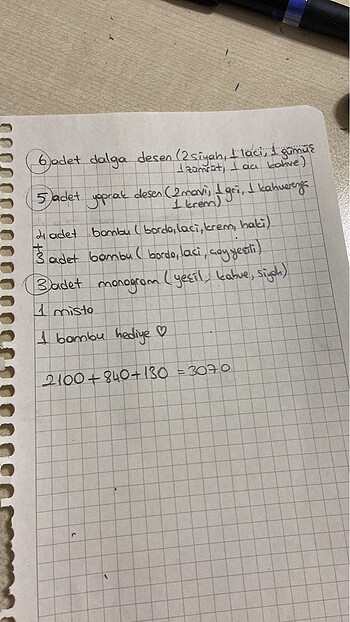 6 adet dalga desen (2 siyah, 1 laci, 1 gümüş
1 zümrüt, 1 acı kahve)
5 adet yaprak desen (2 mavi, 1 gri, 1 kahverengi
1 krem)
4 adet bambu (bordo, laci, krem, haki)
+
3 adet bambu (bordo, laci, çay yeşili)
3 adet monogram (yeşil, kahve, siyah)
1 misto
1 bambu hediye ♡
2100 + 840 + 130 = 3070